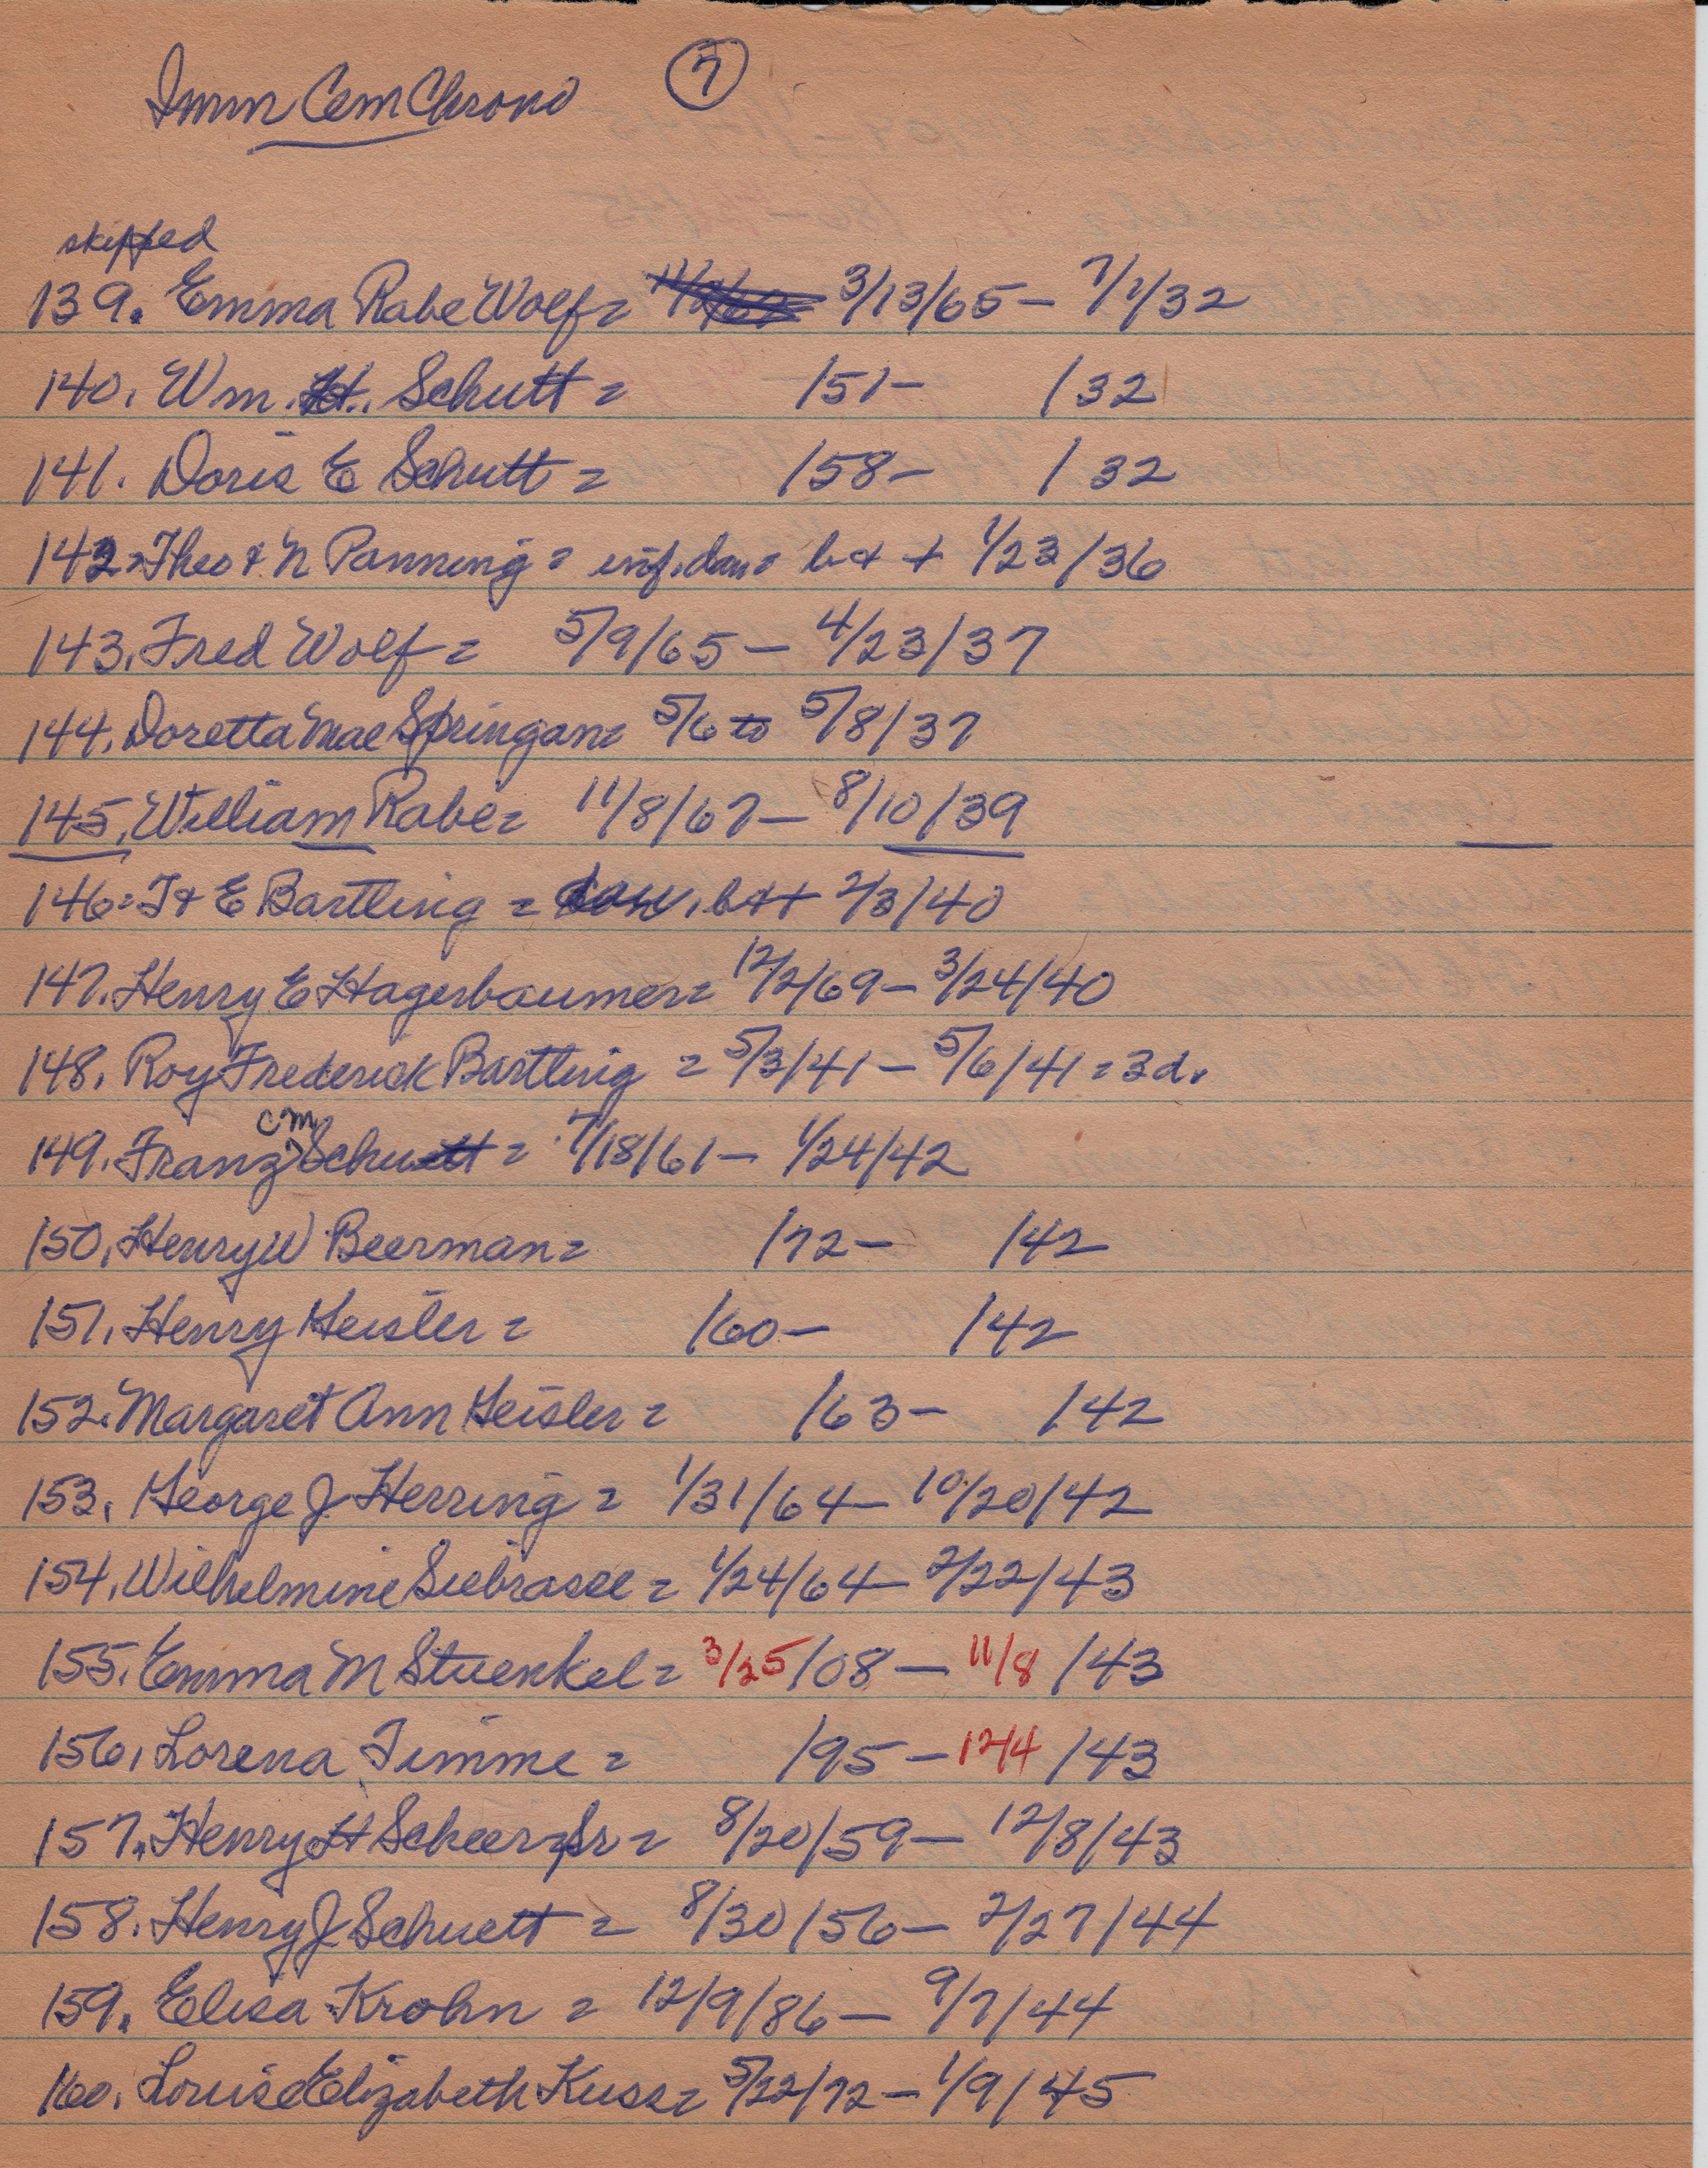 Imm Cem Chrono 7
skipped
139. Emma Rabe Wolf = 3/13/65 - 7/1/32
140. Wm. H. Schutt = /51- /32
141. Doris E Schutt = /58- /32
142. Theo & N Panning = inf. dau = b & + 1/23/36
143. Fred Wolf = 5/9/65 - 4/23/37
144. Doretta Mae Springan = 5/6 to 5/8/37
145. William Rabe = 11/8/67 - 8/10/39
146. T & E Bartling = dau. b & + 2/3/40
147. Henry E Hagerbaumer = 12/2/69 - 3/24/40
148. Roy Frederick Bartling = 5/3/41 - 5/6/41 = 3 d.
149. Franz CM Schuett = 7/18/61 - 1/24/42
150. Henry W Beerman = /72 - /42
151. Henry Geisler = /60 - /42
152. Margaret Ann Geisler = /63 - /42
153. George J Herring = 1/31/64 - 10/20/42
154. Wilhelmine Siebrasse = 1/24/64 - 2/22/43
155. Emma M Stuenkel = 3/25/08 - 11/8/43
156. Lorena Timme = /95 - 12/4/43
157. Henry H Scheer Sr = 8/20/59 - 12/8/43
158. Henry J Schuett = 8/30/56 - 2/27/44
159. Elisa Krohn = 12/9/86 - 9/7/44
160. Louise Elizabeth Kuss = 5/22/72 - 1/9/45